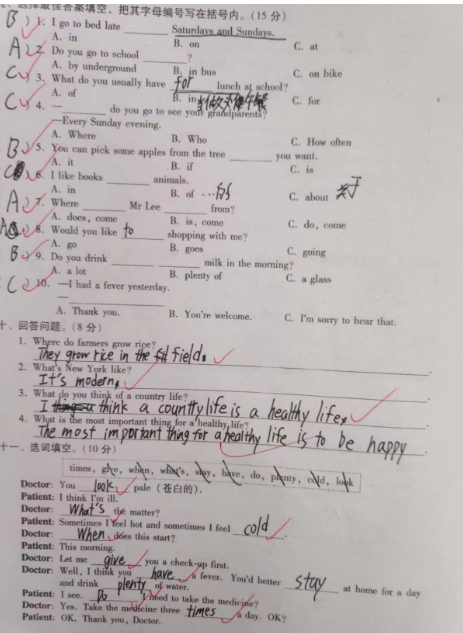 选择最佳答案填空，把其字母编号写在括号内。(15分)
B ) 1. I go to bed late ______ Saturdays and Sundays.
A. in B. on C. at
A ) 2. Do you go to school ______?
A. by underground B. in bus C. on bike
C ) 3. What do you usually have for lunch at school?
A. of B. in C. for
C ) 4. —______ do you go to see your grandparents?
—Every Sunday evening.
A. Where B. Who C. How often
B ) 5. You can pick some apples from the tree ______ you want.
A. it B. if C. is
C ) 6. I like books ______ animals.
A. in B. of …的 C. about 关于
A ) 7. Where ______ Mr Lee ______ from?
A. does, come B. is, come C. do, come
A ) 8. Would you like to ______ shopping with me?
A. go B. goes C. going
B ) 9. Do you drink ______ ______ milk in the morning?
A. a lot B. plenty of C. a glass
C ) 10. —I had a fever yesterday.
—______
A. Thank you. B. You're welcome. C. I'm sorry to hear that.
十、回答问题。(8分)
1. Where do farmers grow rice?
They grow rice in the field.
2. What's New York like?
It's modern.
3. What do you think of a country life?
I think a country life is a healthy life.
4. What is the most important thing for a healthy life?
The most important thing for a healthy life is to be happy.
十一、选词填空。(10分)
times, give, when, what's, stay, have, do, plenty, cold, look
Doctor: You look pale (苍白的).
Patient: I think I'm ill.
Doctor: What's the matter?
Patient: Sometimes I feel hot and sometimes I feel cold.
Doctor: When does this start?
Patient: This morning.
Doctor: Let me give you a check-up first.
Doctor: Well, I think you have a fever. You'd better stay at home for a day
and drink plenty of water.
Patient: I see. Do I need to take the medicine?
Doctor: Yes. Take the medicine three times a day. OK?
Patient: OK. Thank you, Doctor.